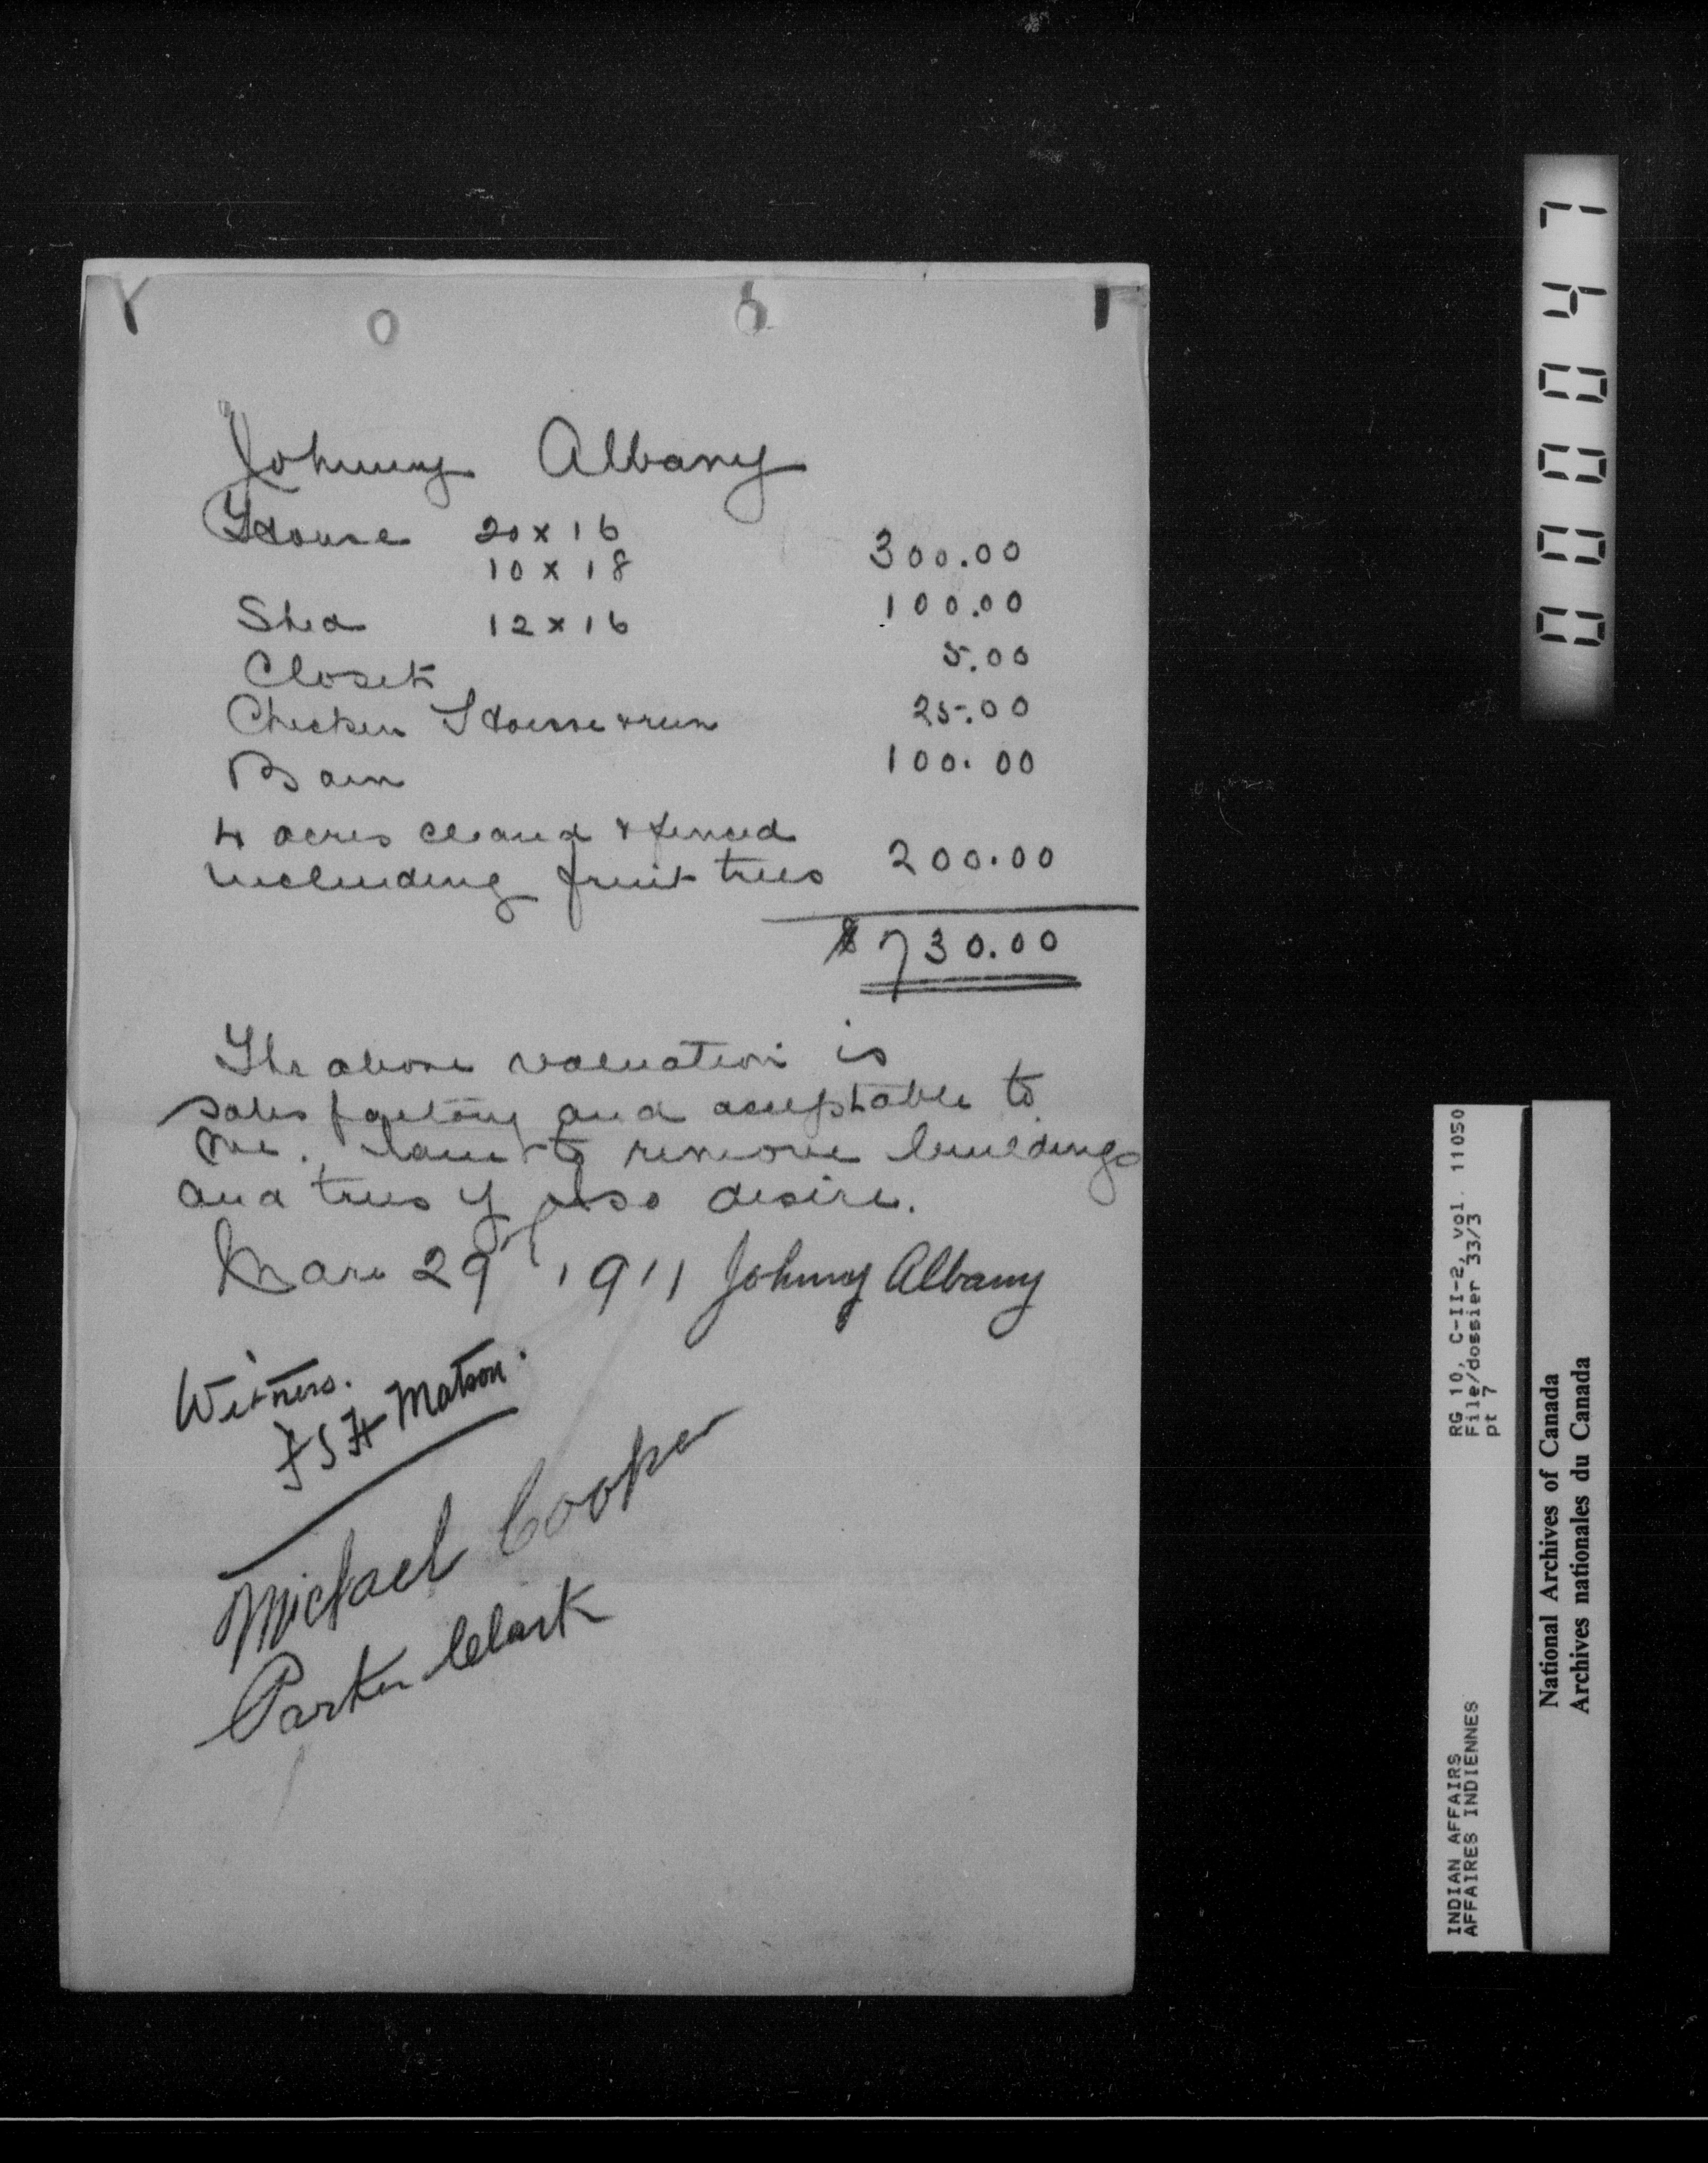 Johnny Albany
House 20 x 16
10 x 18 300.00
Shed 12 x 16 100.00
Closet 5.00
Chicken House & run 25.00
Barn 100.00
4 acres cleared & fenced
including fruit trees 200.00
$730.00
The above valuation is
satisfactory and acceptable to
me. I am to remove buildings
and trees if I so desire.
Mar 29 1911 Johnny Albany
Witness.
J S H Matson.
Michael Cooper
Parker Clark
0000047
RG 10, C-II-2, vol. 11050
File/dossier 33/3
pt 7
INDIAN AFFAIRS
AFFAIRES INDIENNES
National Archives of Canada
Archives nationales du Canada